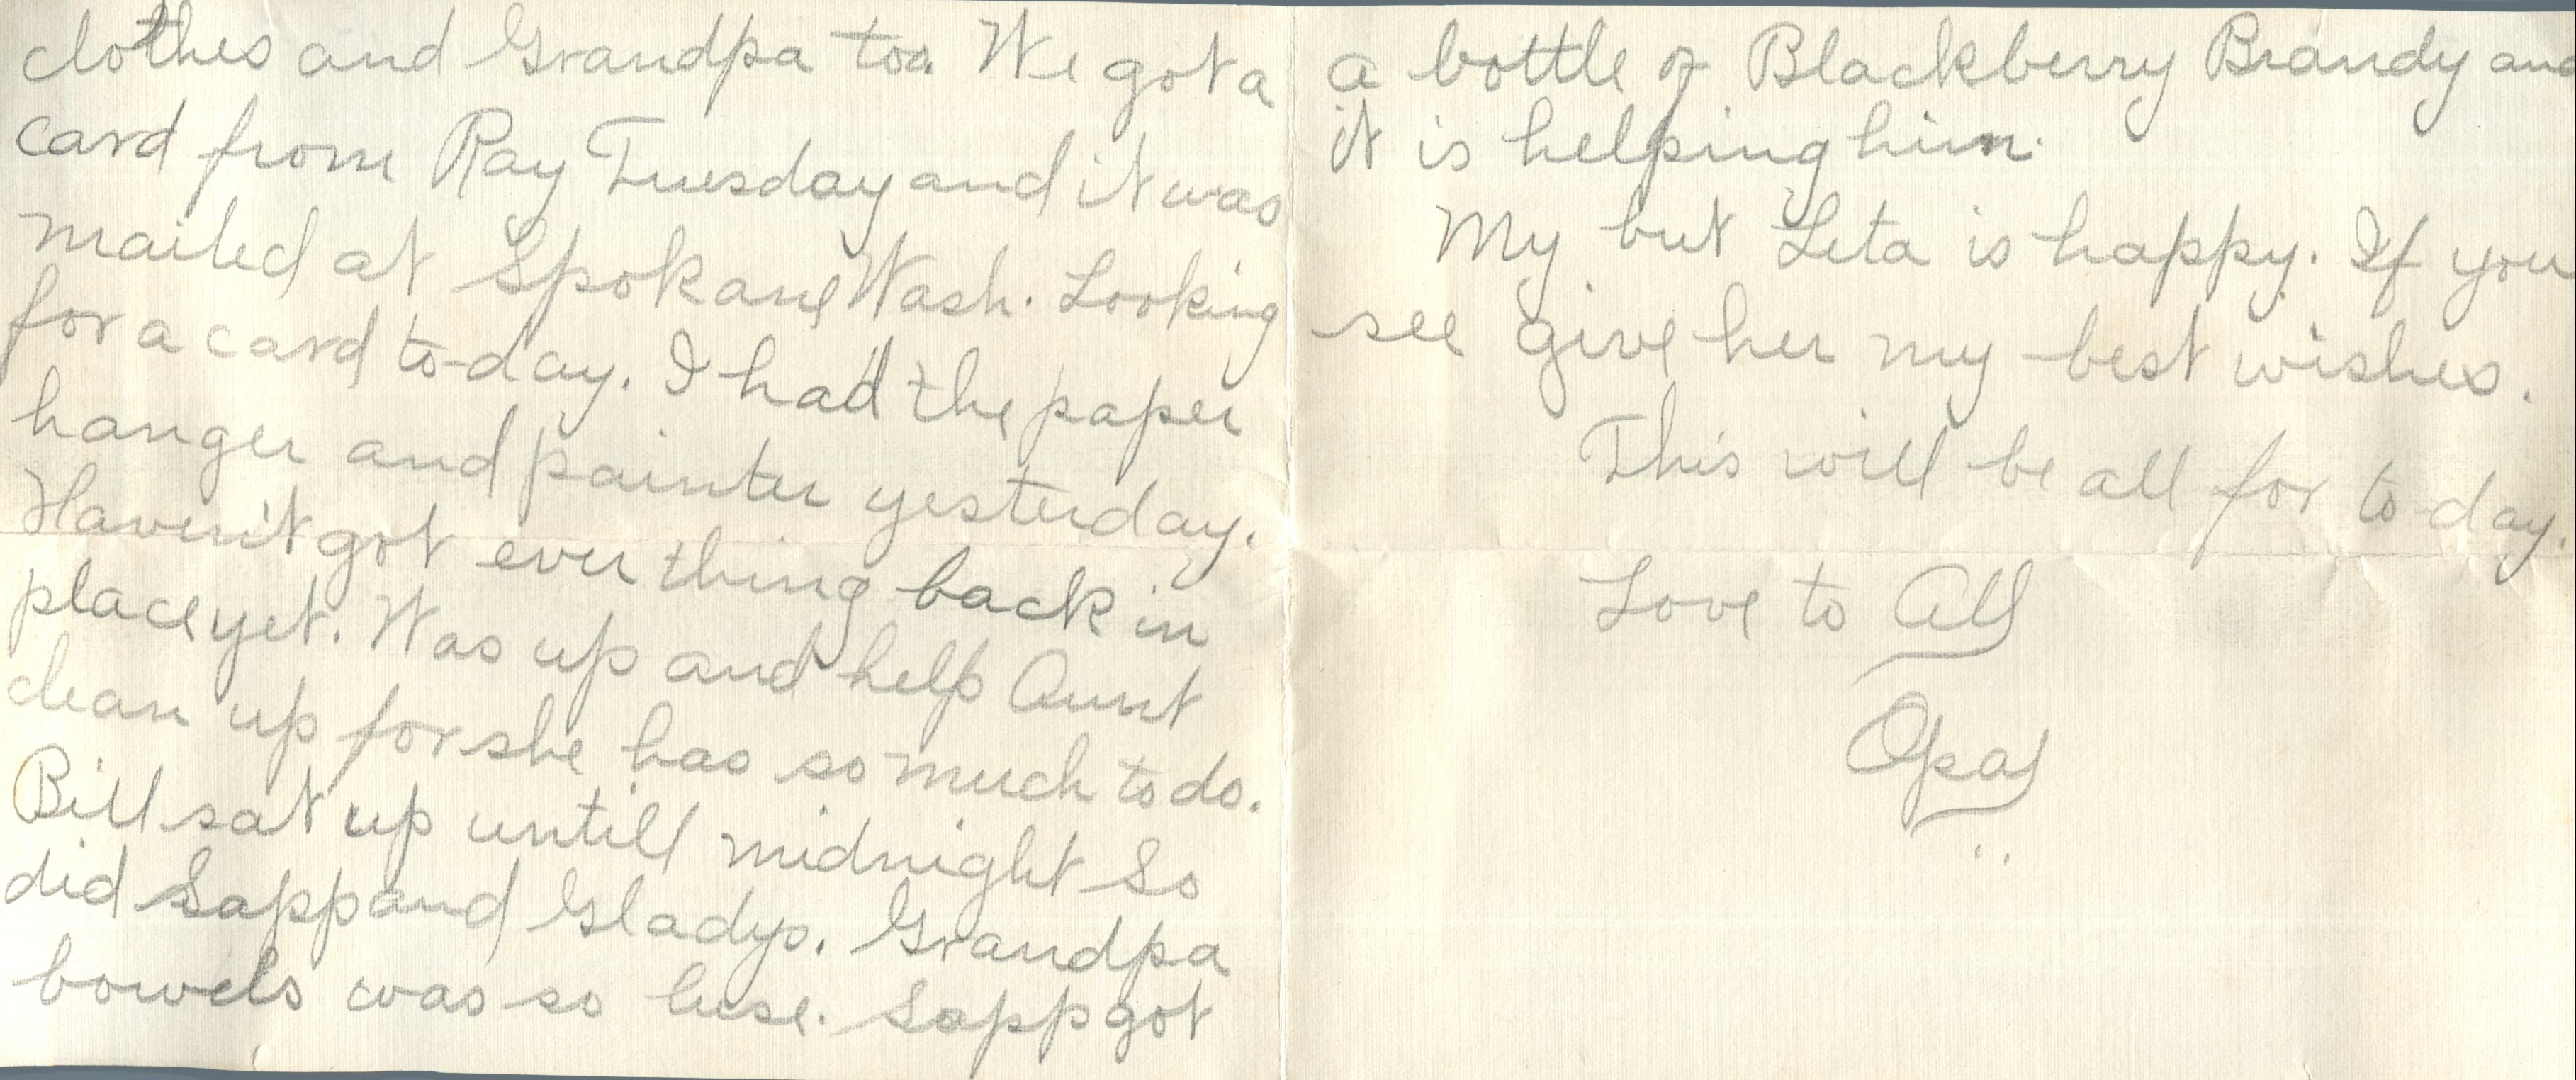 clothes and Grandpa too. We got a
card from Ray Tuesday and it was
mailed at Spokane Wash. Looking
for a card to-day. I had the paper
hanger and painter yesterday.
Haven't got ever thing back in
place yet. Was up and help Aunt
clean up for she has so much to do.
Bill sat up untill midnight So
did Sapp and Gladys. Grandpa
bowels was so luse. Sapp got
a bottle of Blackberry Brandy and
it is helping him.
My but Leta is happy. If you
see give her my best wishes.
This will be all for to-day.
Love to All
Opal